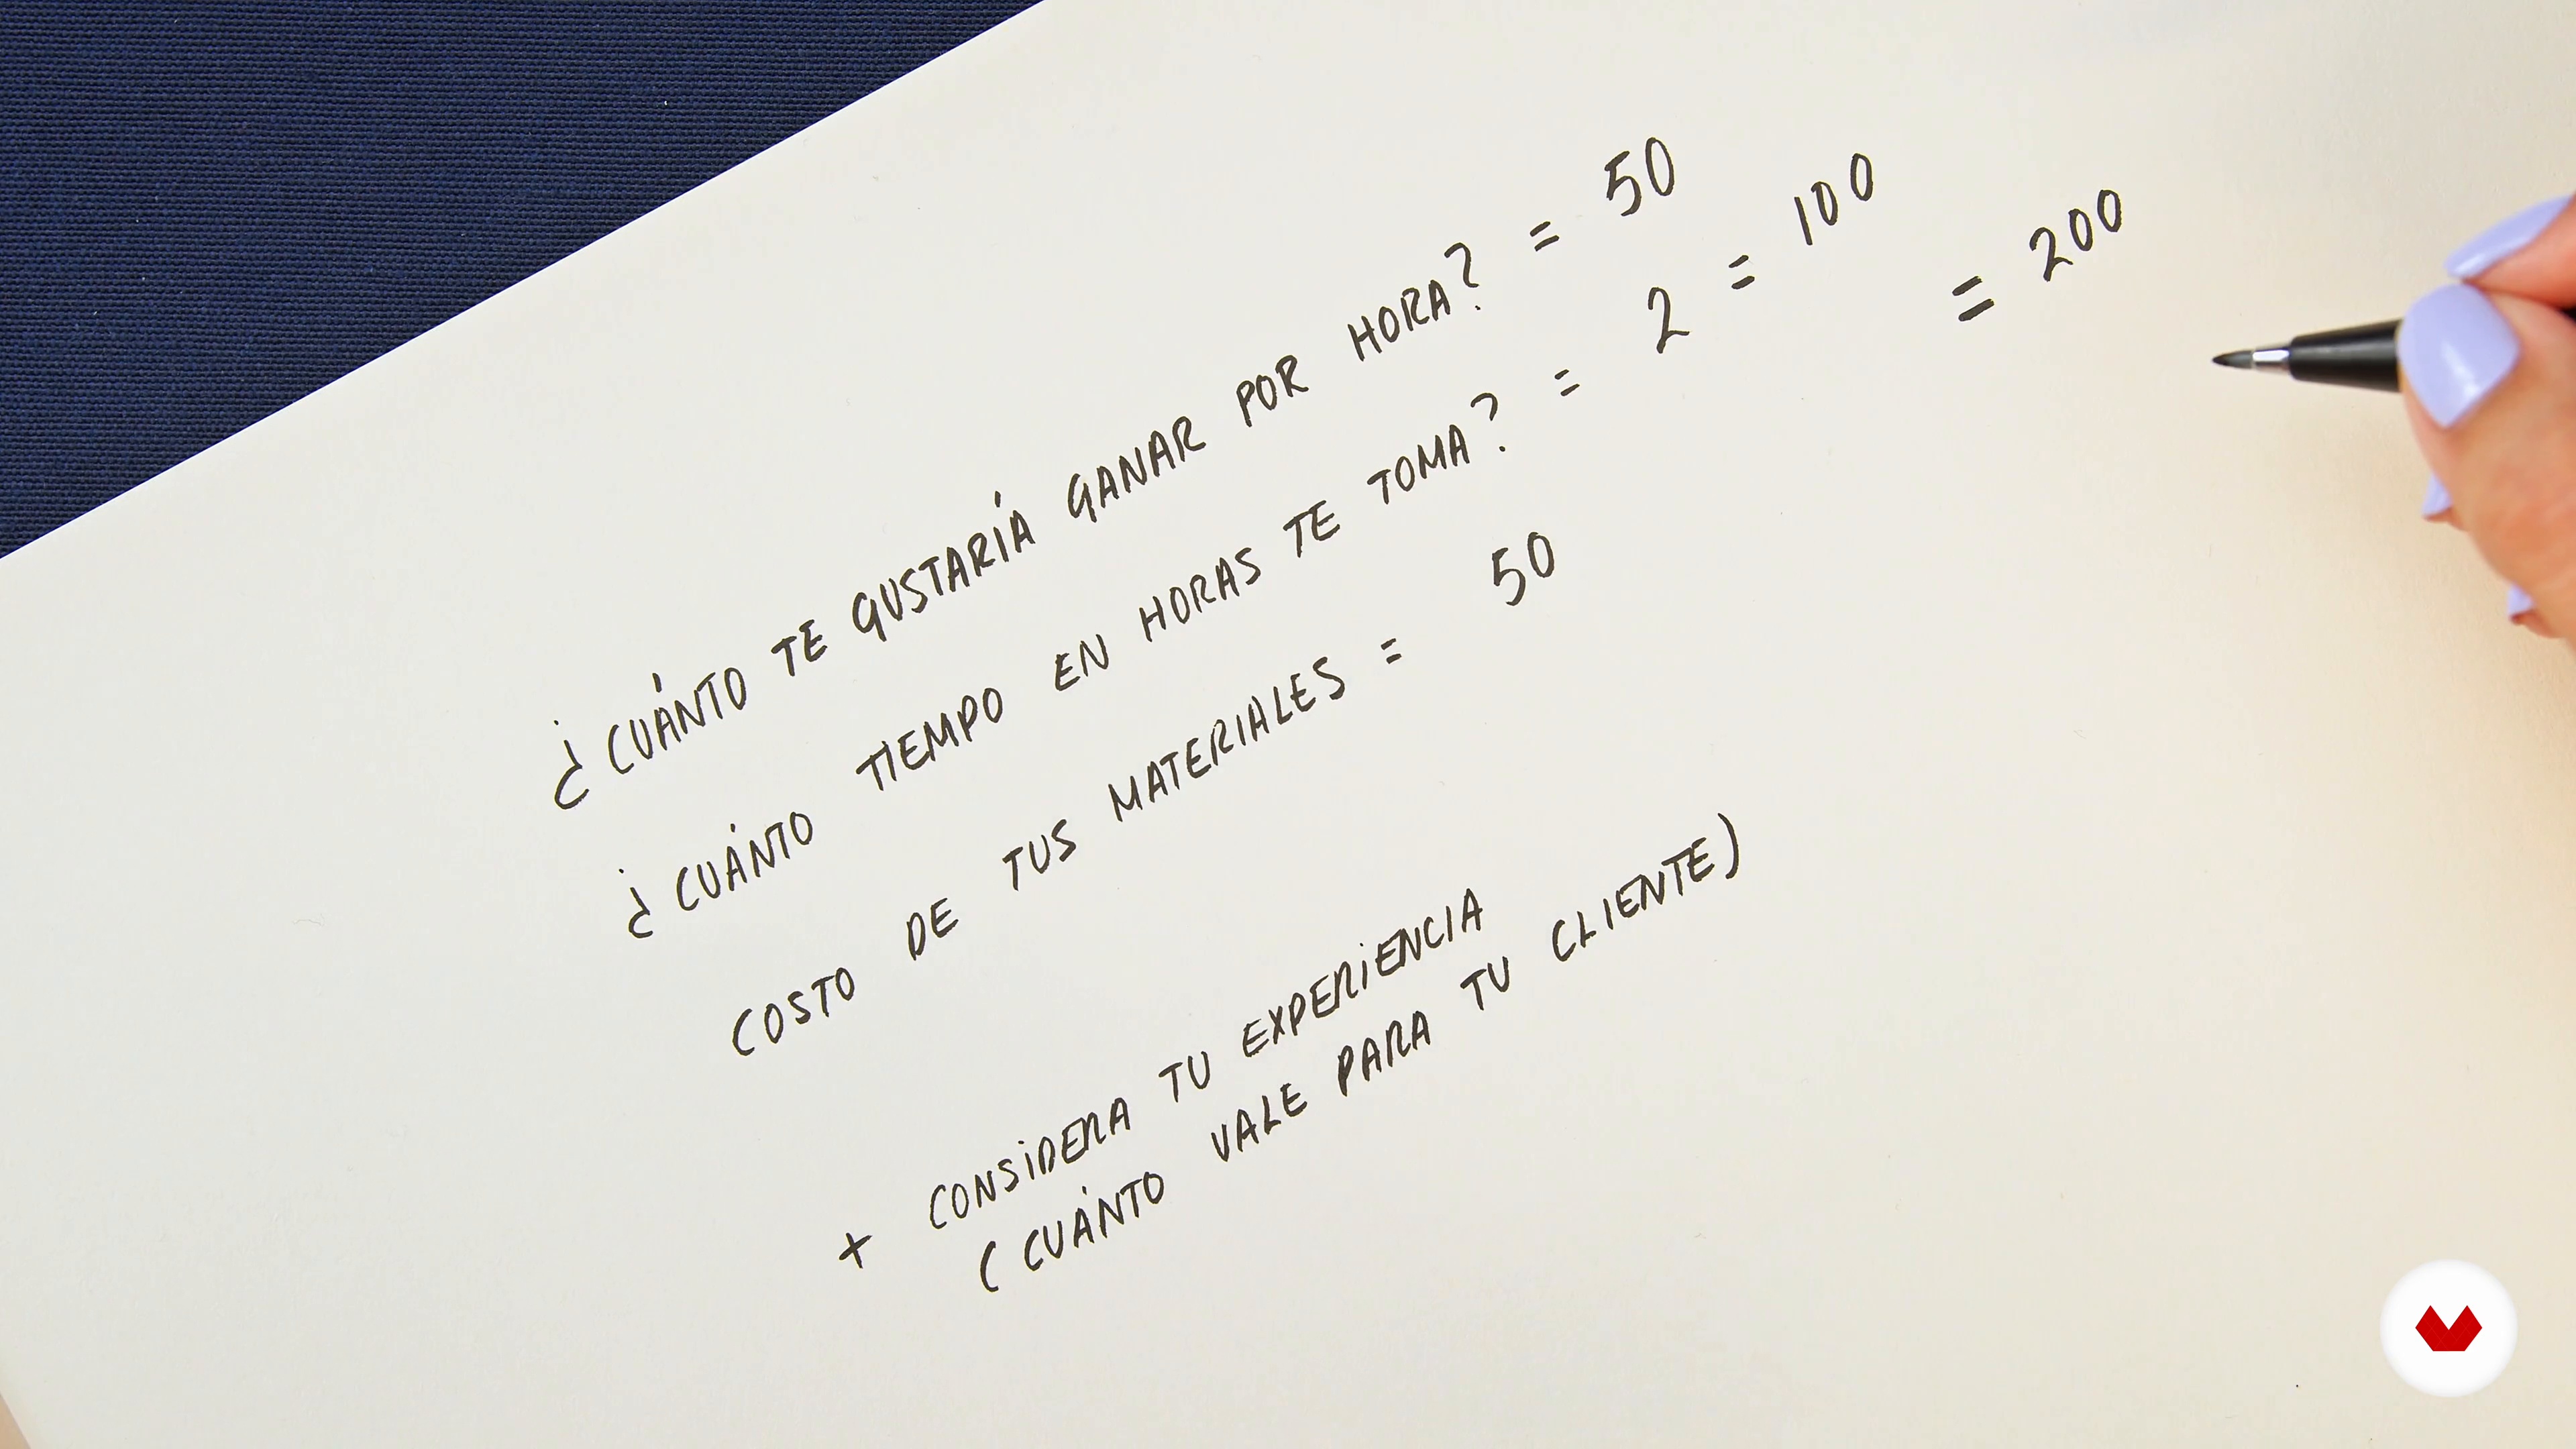 ¿CUÁNTO TE GUSTARÍA GANAR POR HORA? = 50
¿CUÁNTO TIEMPO EN HORAS TE TOMA? = 2 = 100
= 200
COSTO DE TUS MATERIALES = 50
+ CONSIDERA TU EXPERIENCIA
(CUÁNTO VALE PARA TU CLIENTE)